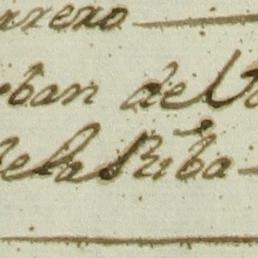 arrero
rban de U
de la Riba